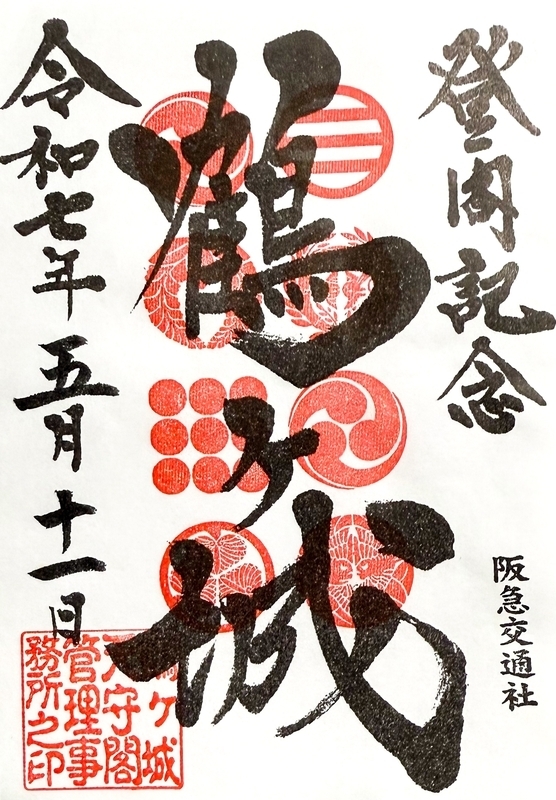 登閣記念
阪急交通社
鶴ヶ城
令和七年五月十一日
鶴ヶ城
天守閣
管理事
務所之印